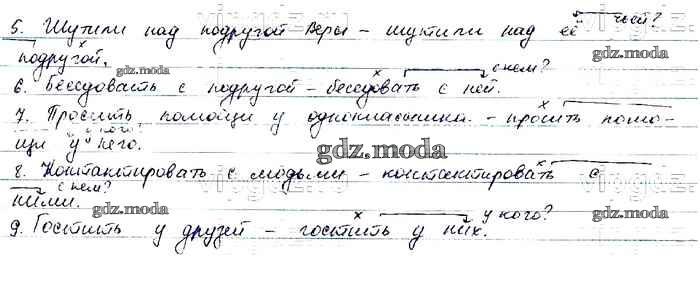 чьей?
5. Шутили над подругой Веры – шутили над её
подругой.
с кем?
6. Беседовать с подругой – беседовать с ней.
7. Просить помощи у одноклассника – просить помо-
у кого?
щи у него.
8. Контактировать с людьми – контактировать с
с кем?
ними.
у кого?
9. Гостить у друзей – гостить у них.
gdz.moda
gdz.moda
gdz.moda
gdz.moda
gdz.moda